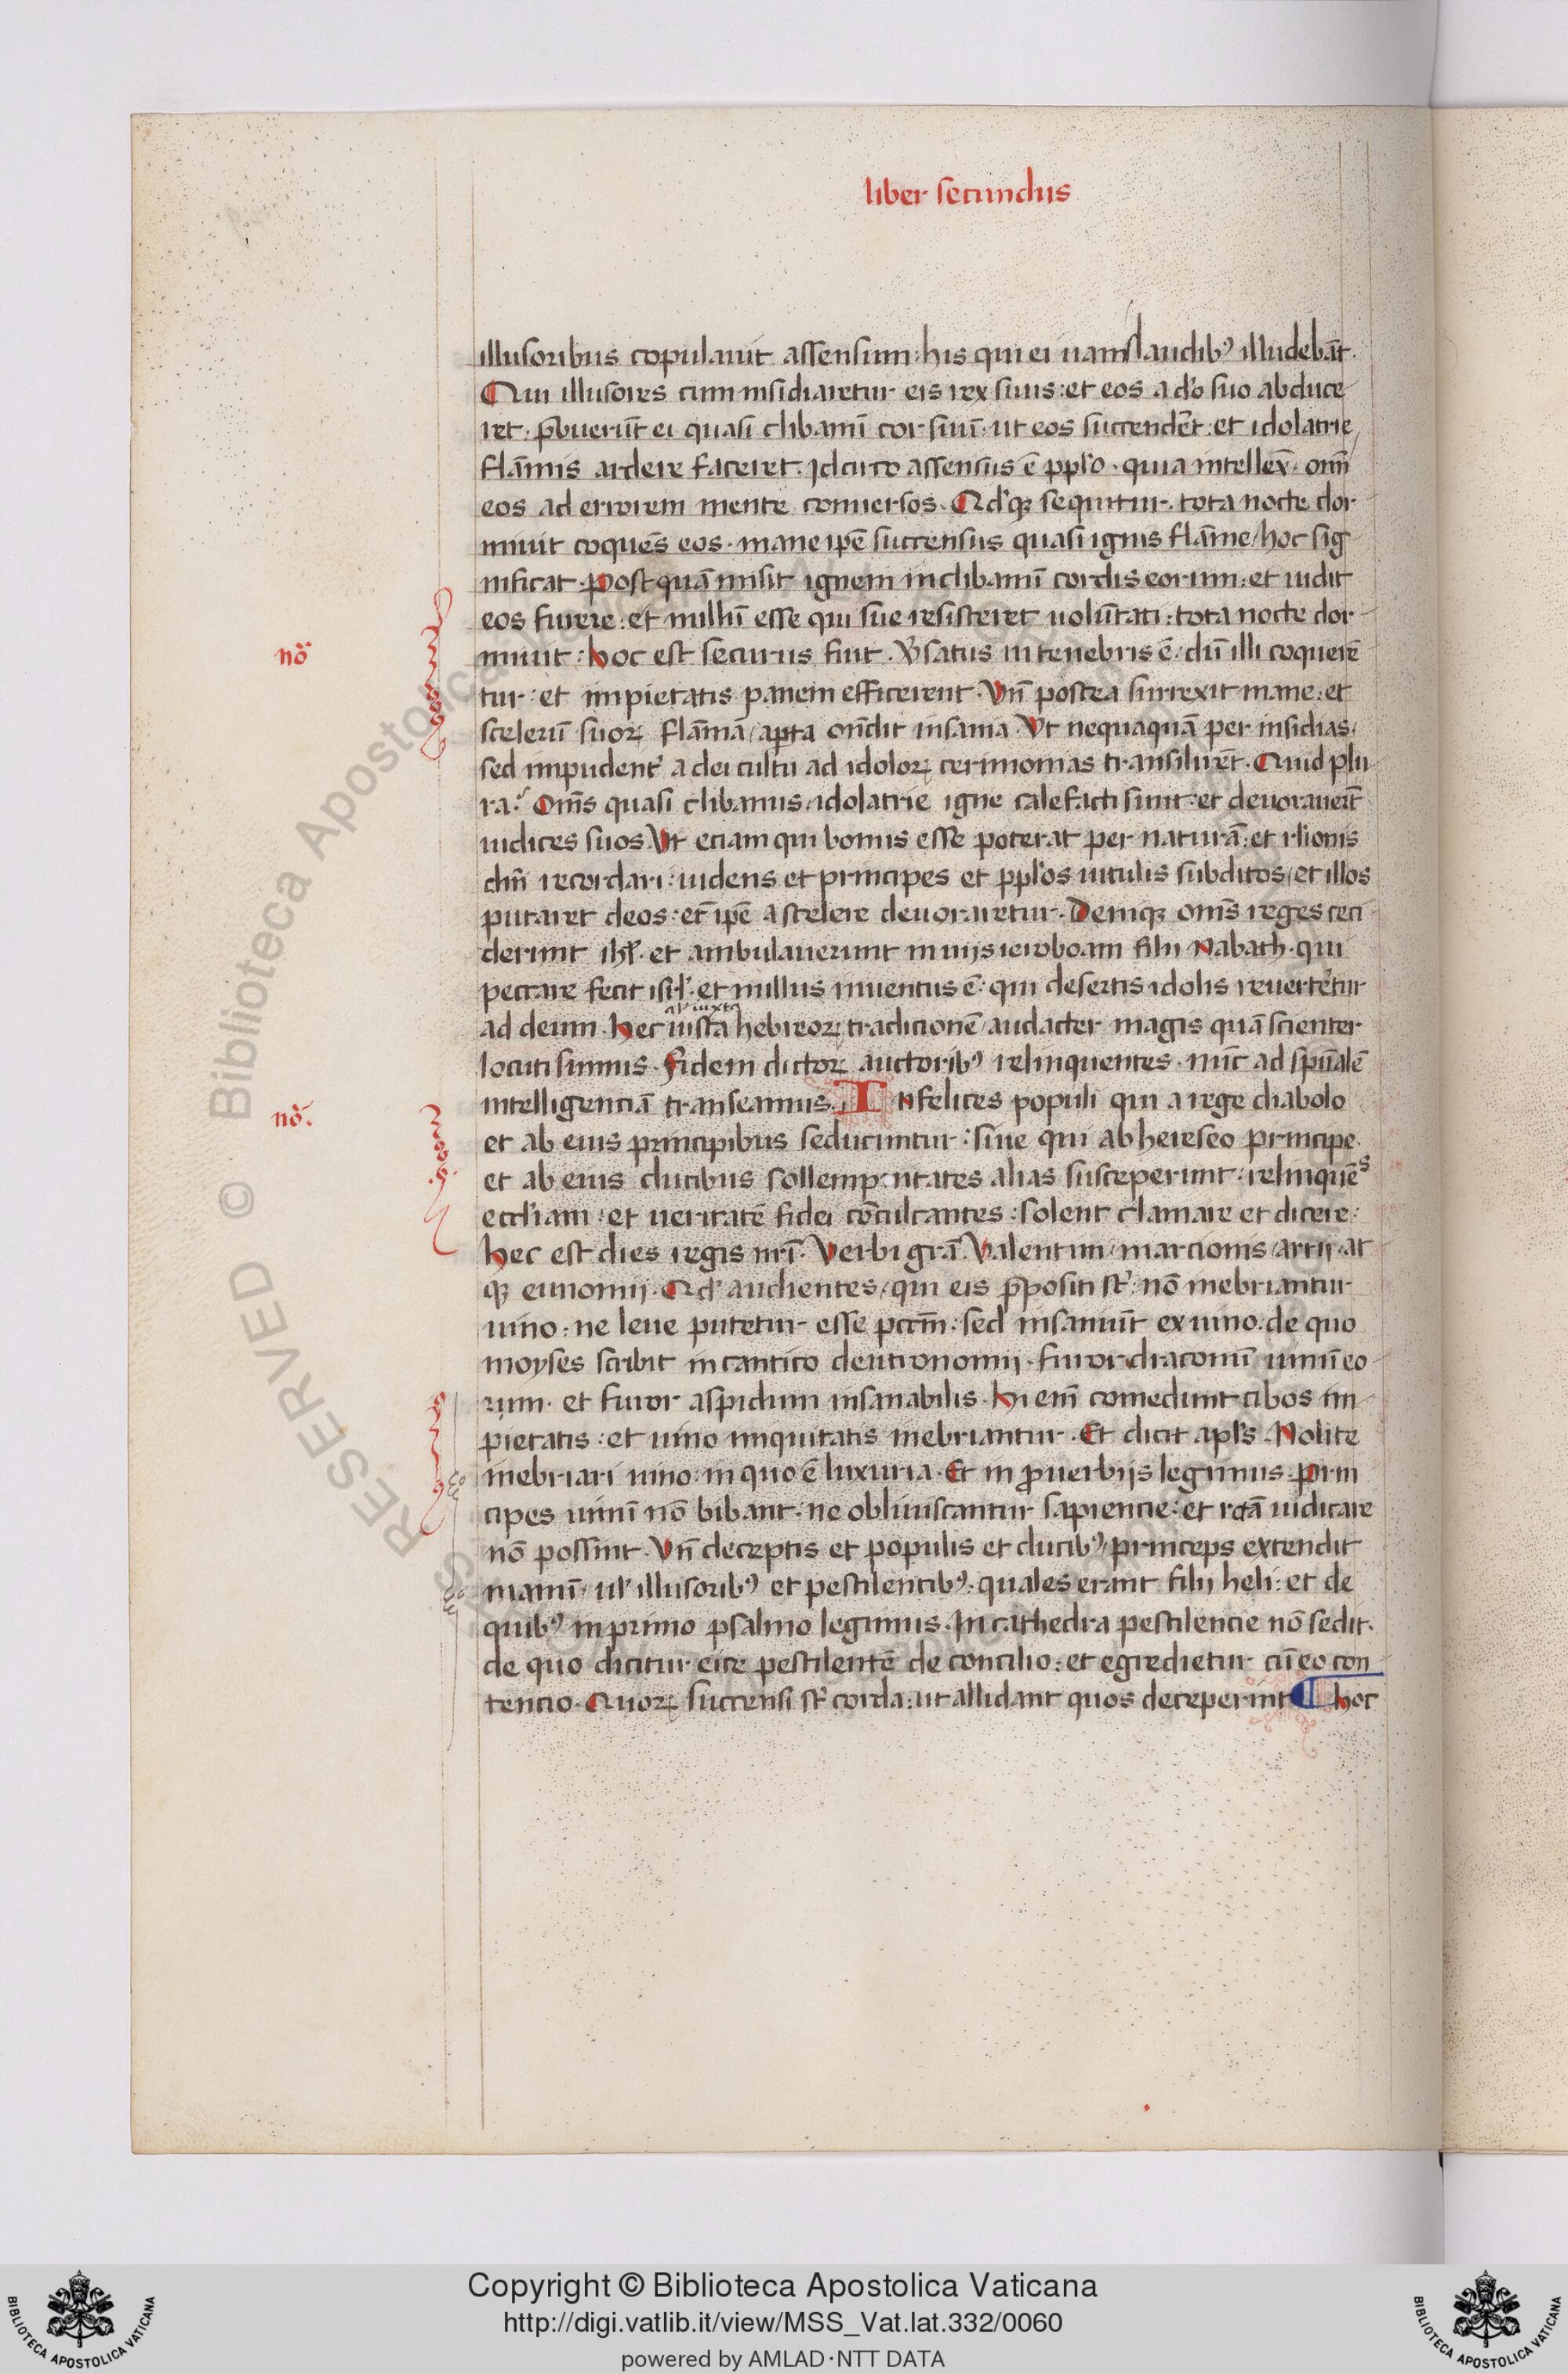 liber secundus
illusoribus copulauit assensum: his qui ei uanis laudibꝰ illudebāt.
Qui illusores cum insidiaretur eis rex suus: et eos a dō suo abduce
ret. p̄buerūt ei quasi clibanū cor suū: ut eos succendēt: et idolatrie
flāmis ardere faceret. Idcirco assensus ē pplo. quia intellex̄. om̄
eos ad errorem mente conuersos. Qdꝙ sequitur. tota nocte dor
miuit coquēs eos. mane ip̄e succensus quasi ignis flāme/ hoc sig
nificat. postquā misit ignem in clibanū cordis eorum: et uidit
eos furere: et nullū esse qui sue resisteret uolūtati: tota nocte dor
nō
miuit: hoc est securus fuit. ⁊ v̄satus in tenebris ē. dū illi coquerē
tur: et impietatis panem efficerent. Vn̄ postea surrexit mane: et
scelerū suoꝝ flāmā/ apta on̄dit insania. Vt nequaquā per insidias/
sed impudent̄ a dei cultu ad idoloꝝ cerimonias transilirēt. Quid plu
ra? Om̄s quasi clibanus/ idolatrie igne calefacti sunt: et deuorauerūt
iudices suos. Vt eciam qui bonus esse poterat per naturā: et rlionis
dn̄i recordari: uidens et principes et pplos uitulis subditos/ et illos
putaret deos: et ip̄e a scelere deuoraretur. Deniqꝫ om̄s reges ceci
derunt ihl̄. et ambulauerunt in uijs ieroboam filij Nabath. qui
peccare fecit isrl̄. et nullus inuentus ē: qui desertis idolis reuertētur
al' iuxta
ad deum. Hec iusta hebreoꝝ tradicionē/ audacter magis quā scienter
locuti sumus. fidem dictoꝝ auctoribꝰ relinquentes. nūc ad sp̄ualē
intelligenciā transeamus. INfelices populi qui a rege diabolo
nō.
et ab eius principibus seducuntur: siue qui ab hereseo principe.
et ab eius ducibus sollempnitates alias susceperunt. relinquēs
eccl̄iam: et ueritatē fidei cōculcantes: solent clamare et dicere:
Hec est dies regis nr̄i. Verbi grā. Valentini/ marcionis/ arrij. at
qꝫ eunomij. Qd̄ audientes/ qui eis p̄positi st̄: nō inebriantur
uino: ne leue putetur esse pccm̄: sed insaniūt ex uino. de quo
moyses scribit in cantico deutronomij. furor draconū uinū eo
rum. et furor aspidum insanabilis. Hi em̄ comedunt cibos im
pietatis: et uino iniquitatis inebriantur. Et dicit apl̄s. Nolite
inebriari uino. in quo ē luxuria. Et in ꝓuerbijs legimus. Prin
cipes uinū nō bibant: ne obliuiscantur sapiencie: et rctā iudicare
nō possint. Vn̄ deceptis et populis et ducibꝰ/ princeps extendit
manū/ ul̄ illusoribꝰ et pestilentibꝰ. quales erant filij heli: et de
quibꝰ in primo psalmo legimus. In cathedra pestilencie nō sedit.
de quo dicitur. eice pestilentē de concilio: et egredietur cū eo con
tencio. Quoꝝ succensi st̄ corda: ut allidant quos deceperint ¶ Hoc
© Biblioteca Apostolica
RESERVED
Copyright © Biblioteca Apostolica Vaticana
http://digi.vatlib.it/view/MSS_Vat.lat.332/0060
powered by AMLAD·NTT DATA
BIBLIOTECA APOSTOLICA VATICANA
BIBLIOTECA APOSTOLICA VATICANA